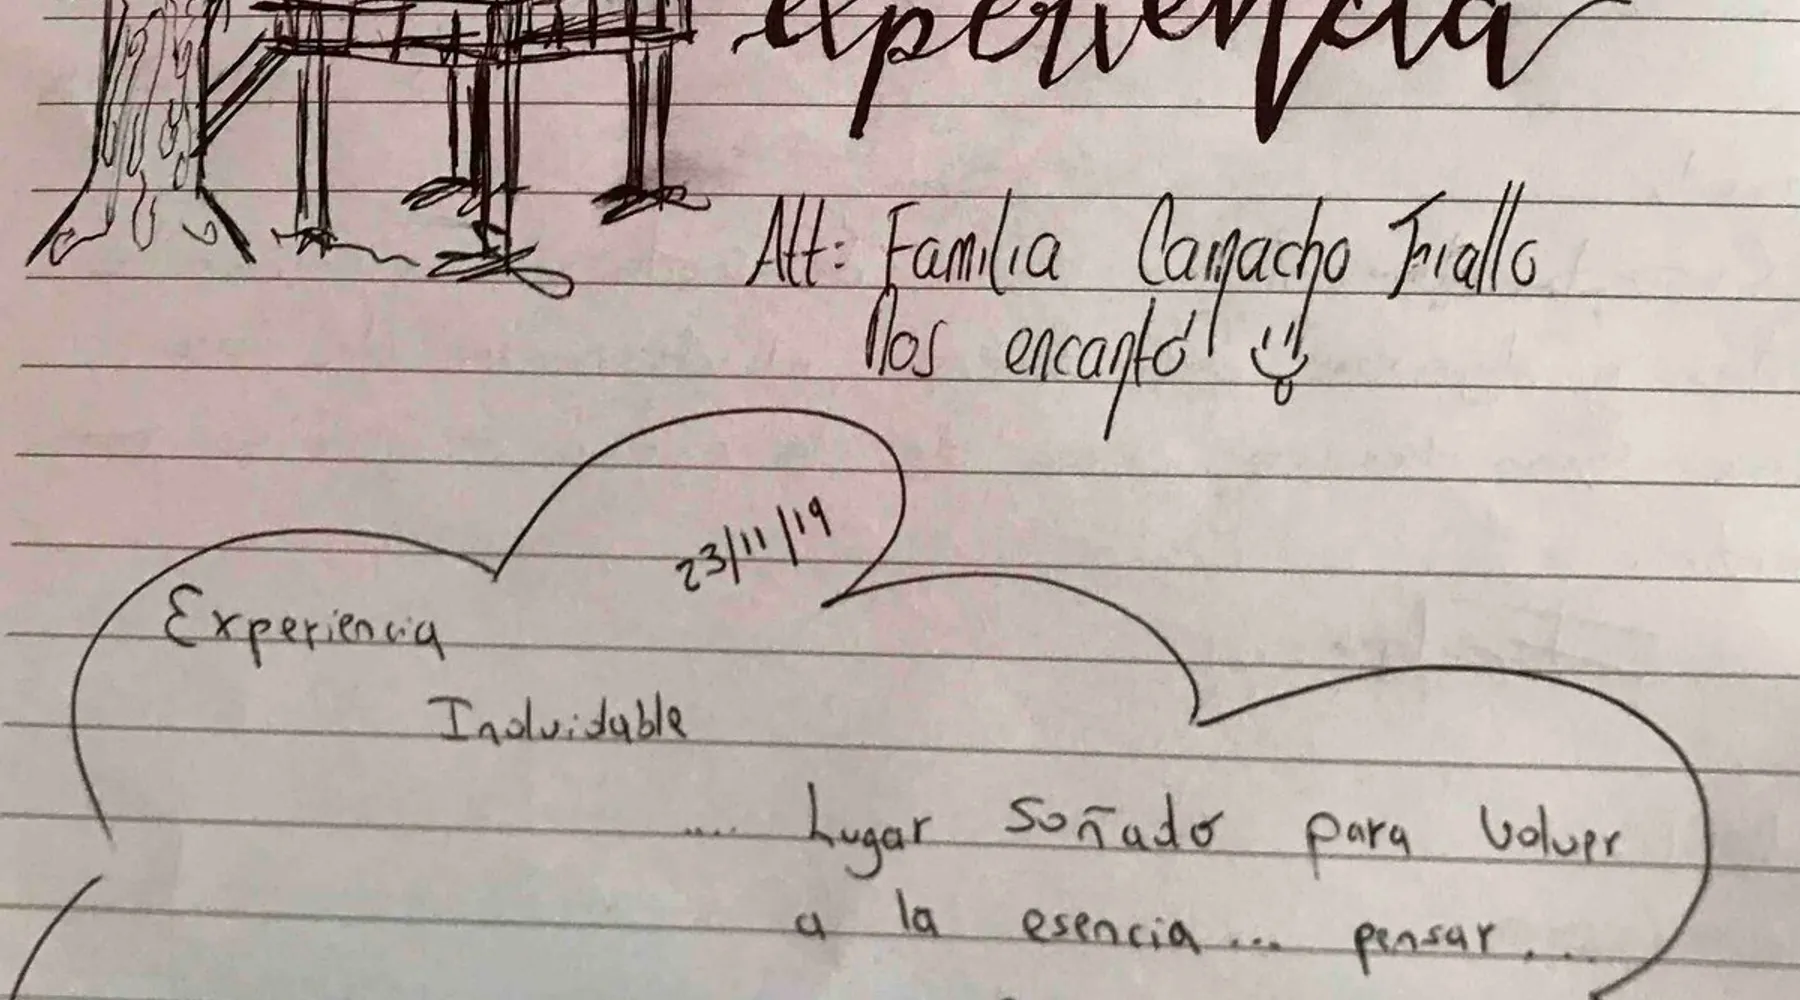 experiencia
Att: Familia Camacho Fiallo
Nos encantó!
23/11/19
Experiencia
Inolvidable
.... Lugar soñado para volver
a la esencia... pensar....